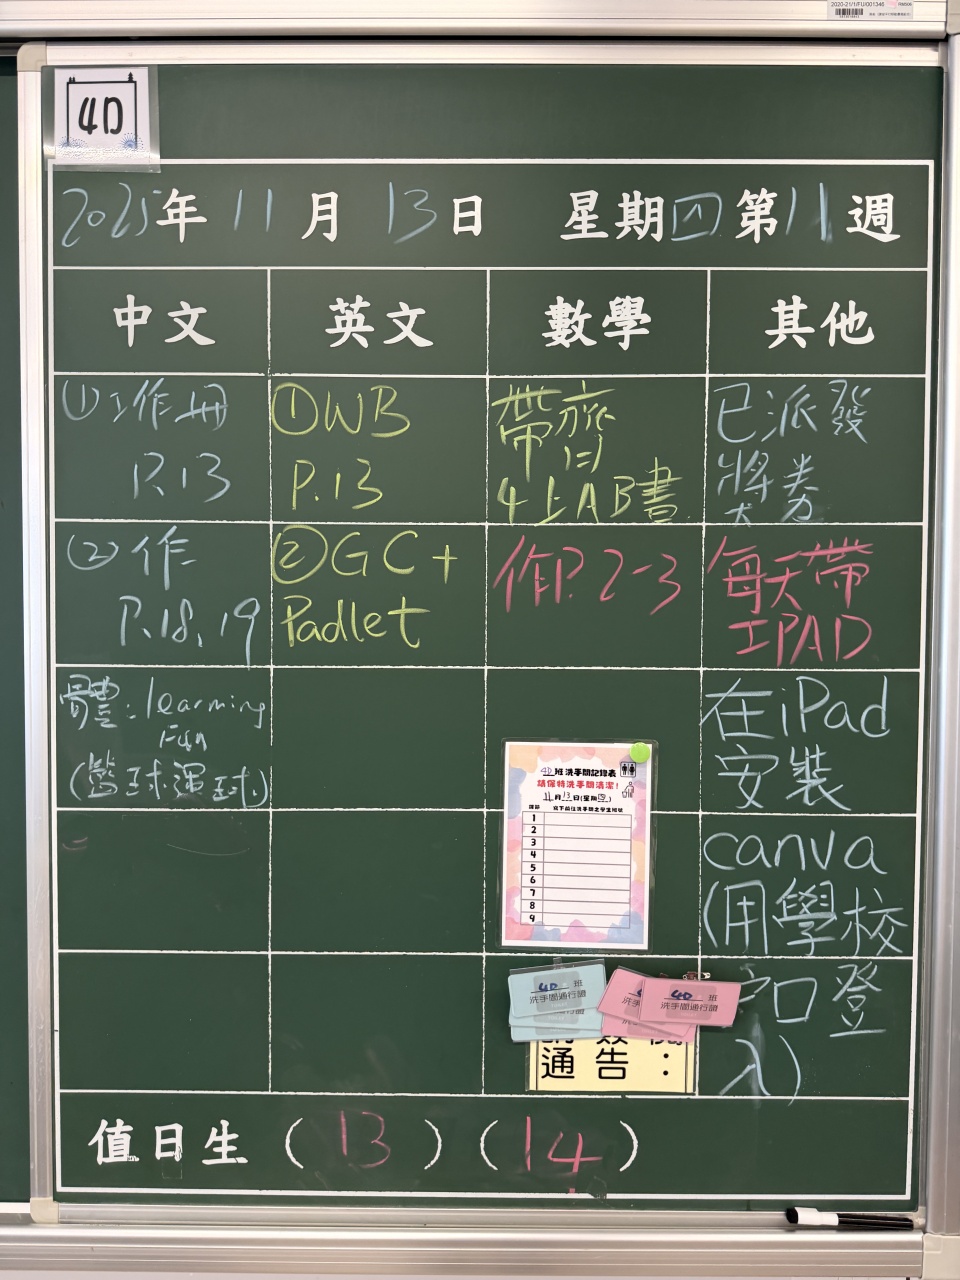 2020-21/1/FU/001346
4D
2025年11月13日 星期四第11週
中文 英文 數學 其他
①工作冊
P.13
①WB
P.13
帶齊
4上AB書
已派發
獎券
②作
P.18、19
②GC+
Padlet
作P.2-3
每天帶
IPAD
體：learning
Fun
(籃球運球)
在iPad
安裝
canva
(用學校
戶口登
入)
4D班洗手間記錄表
請保持洗手間清潔！
11月13日(星期四)
課節 寫下前往洗手間之學生班號
1
2
3
4
5
6
7
8
9
4D班
洗手間通行證
4D班
洗手間通行證
通告：
值日生（13）（14）